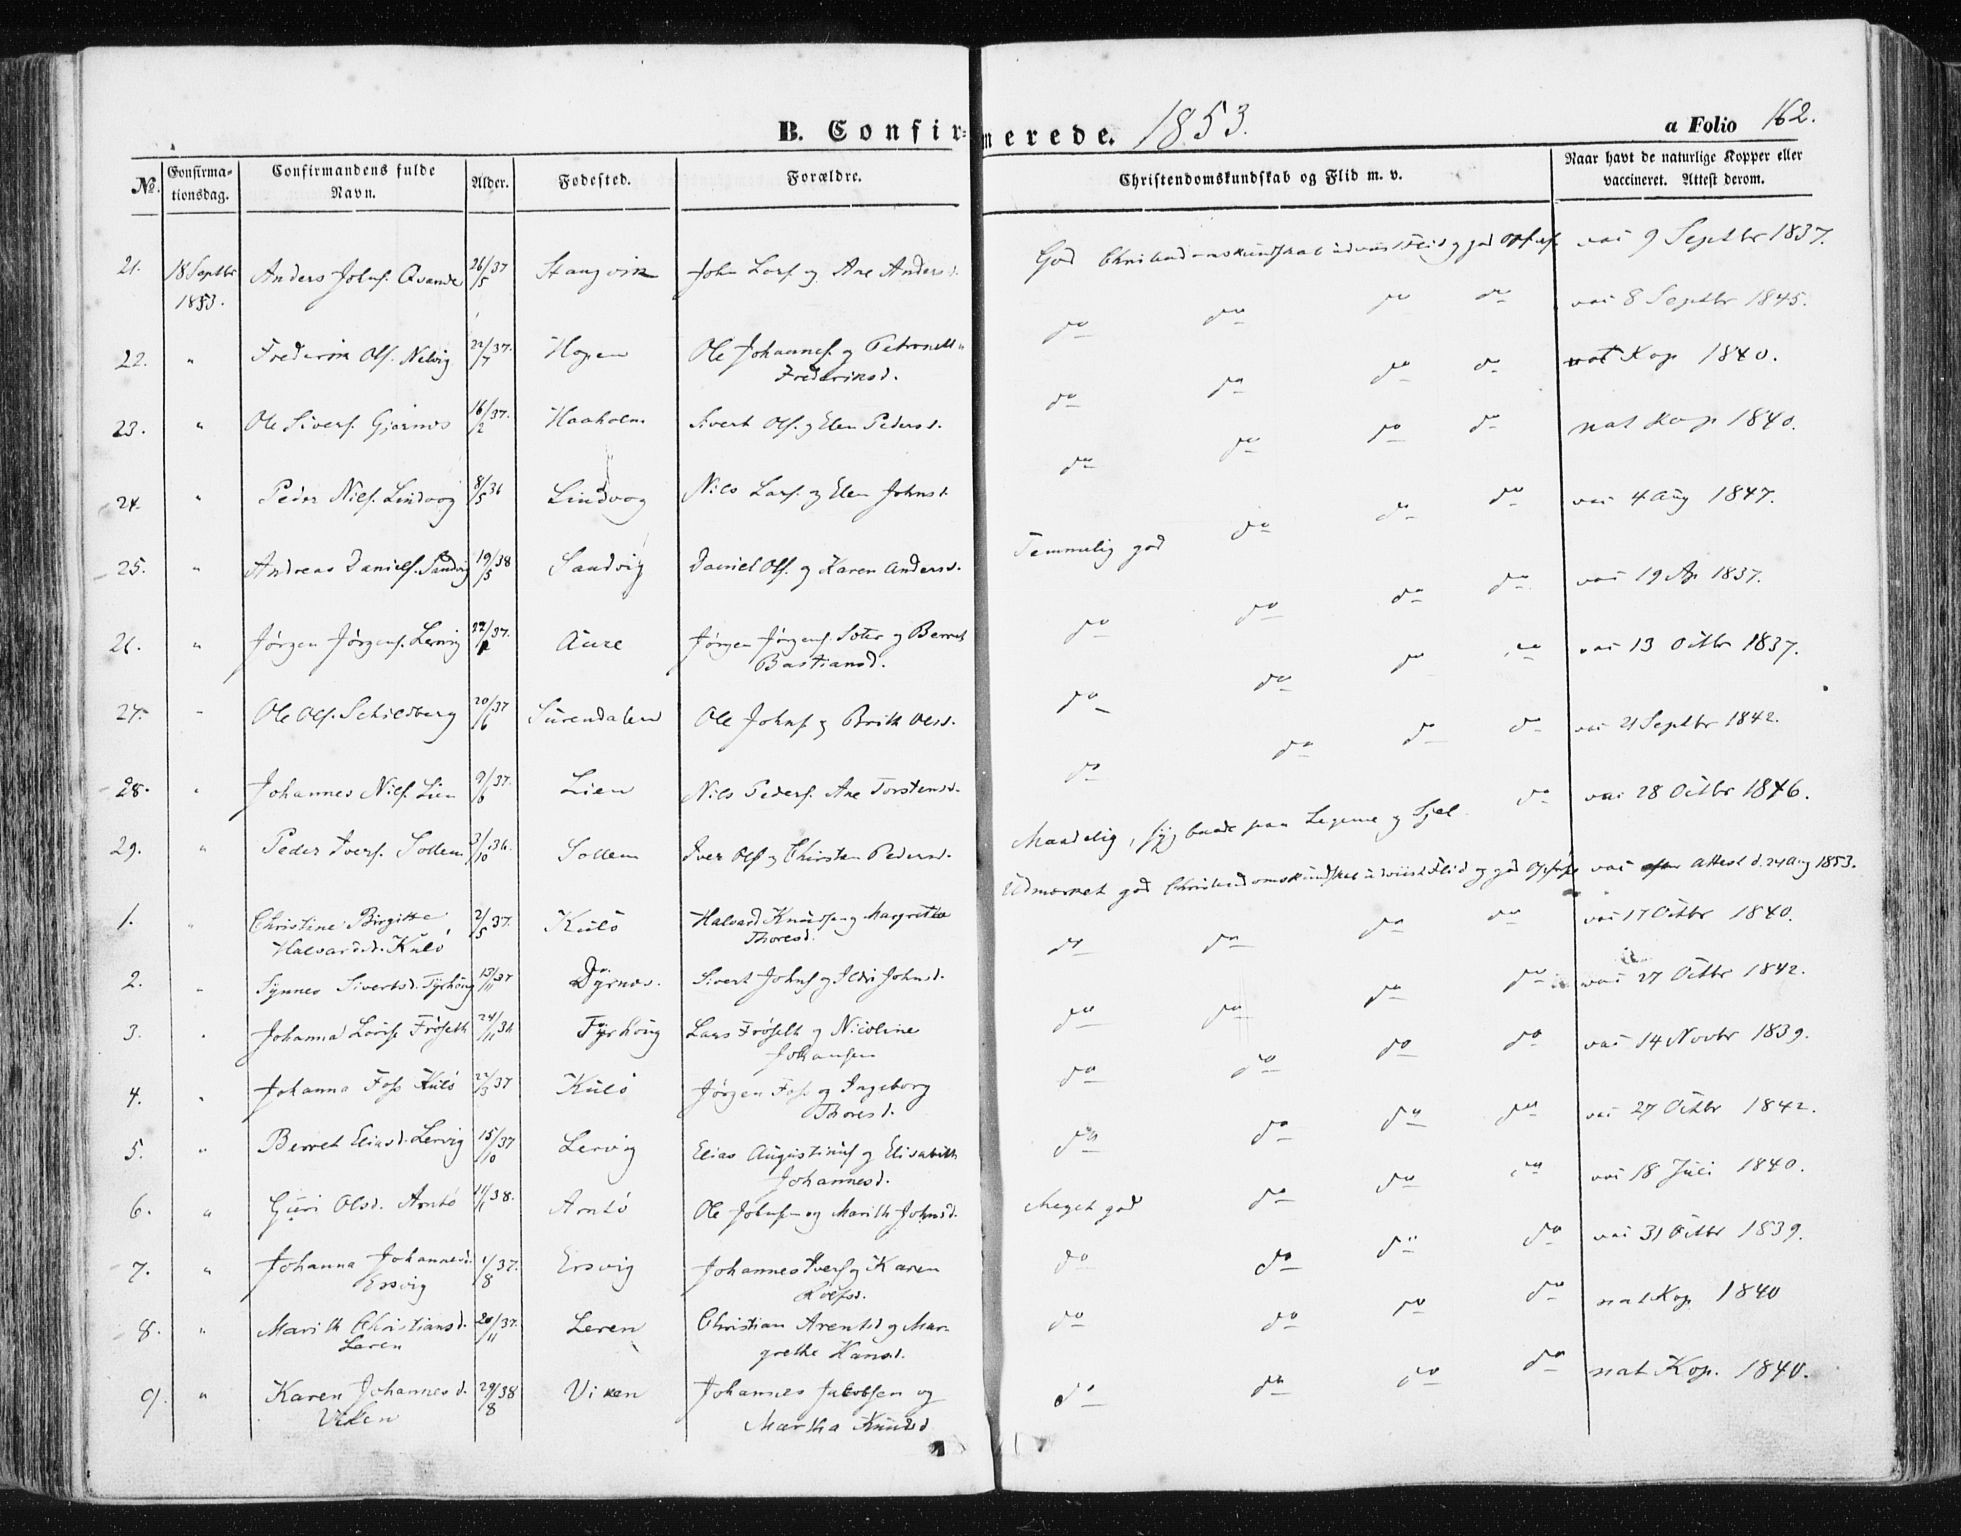 B. Confirmerede. 1853. a Folio 162.
No. Confirmationsdag. Confirmandens fulde Navn. Alder. Fødested. Forældre. Christendomskundskab og Flid m. v. Naar havt de naturlige Kopper eller vaccineret. Attest derom.
21. 18 Septbr 1853. Anders Johns. 26/5 37 Stangvik John Lars. og Ane Andersd. God Christendomskundskab udviist Flid og god Opf. vac 9 Septbr 1837.
22. " Frederik Ols. Nelvig 22/7 37. Hopen Ole Johannes. og Petronell Frederiksd. do do do do vac 8 Septbr 1845.
23. " Ole Sivers. Gjernes 16/2 37. Haaholm Sivert Ols. og Elen Pedersd. do do do do nat Kop 1840.
24. " Peder Nils. Lindvog 8/5 36 Lindvog Nils Lars. og Elen Johnsd. do do do do nat Kop 1840.
25. " Andreas Daniels. Sandvig 19/5 38 Sandvig Daniel Ols. og Karen Andersd. Temmelig god do do do vac 4 Aug 1847.
26. " Jørgen Jørgens. Lervig 22/ 37. Aure Jørgen Jørgens. og Berret Bastiansd. do do do do vac 19 Ap 1837.
27. " Ole Ols. Schildberg 20/6 37 Surendalen Ole Johns. og Brith Olsd. do do do do vac 13 Octbr 1837.
28. " Johannes Nils. Lien 9/6 37. Lien Nils Peders. Ane Torstensd. do do do do vac 21 Septbr 1842.
29. " Peder Ivers. Sollem 3/10 36. Sollem Iver Ols og Chirsten Pedersd. Maadelig, syg baade paa Legeme og Sjel do vac 28 Octbr 1846.
1. " Christine Birgitte Halvardsd. Kulø 2/5 37. Kulø Halvard Knudsen og Margrethe Thoresd. Udmærket god Christendomskundskab udviist Flid og god Opf. vac attest d. 24 Aug 1853.
2. " Synnev Sivertsd. Tyrhoug 13/11 37 Dyrnes. Sivert Johns og Ildri Johnsd. do do do do vac 17 Octbr 1840.
3. " Johanna Lovise Frøseth 24/11 36 Tyrhoug Lars Frøseth og Nicoline Johansen do do do do vac 27 Octbr 1842.
4. " Johanna Foss Kulø 22/3 37 Kulø Jørgen Foss og Ingeborg Thoresd. do do do do vac 14 Novbr 1839.
5. " Berret Eliasd. Lervig 15/10 37 Lervig Elias Augustinus. og Elisabeth Johannesd. do do do do vac 27 Octbr 1842.
6. " Guri Olsd. Arntø 11/1 38. Arntø Ole Johnsen og Marith Johnsd. Meget god do do do vac 18 Juli 1840.
7. " Johanna Johannesd. Ersvig 1/8 37. Ersvig Johannes Ivers. og Karen Rolfsd. do do do do vac 31 Octbr 1839.
8. " Marith Christiansd. Leren 20/11 37. Leren Christian Arents. og Margrethe Hansd. do do do do nat Kop 1840
9. " Karen Johannesd. Viken 29/8 38 Viken Johannes Jakobsen og Martha Knudsd do do do do nat Kop. 1840.